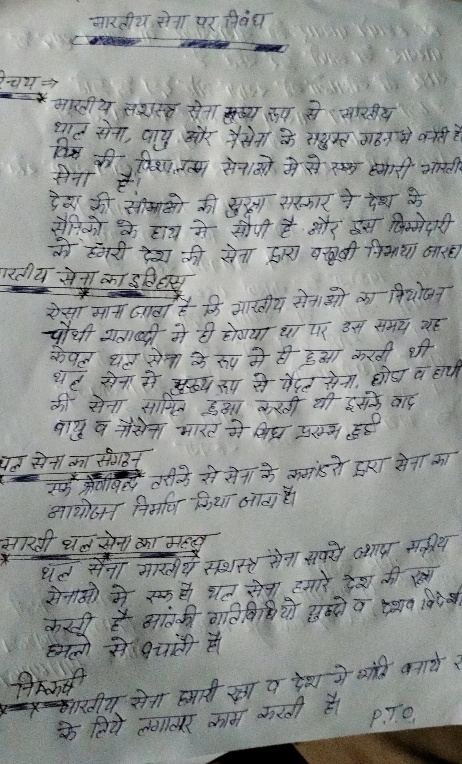 भारतीय सेना पर निबंध
रिचय ⇒
भारतीय सशस्त्र सेना मुख्य रूप से भारतीय
थल सेना, वायु और नैसेना के सयुक्त गठन से बनती है
विश्व की विशालतम सेनाओ मे से एक हमारी भारतीय
सेना है।
देश की सीमाओ की सुरक्षा सरकार ने देश के
सैनिको के हाथ मे सौपी है और इस जिम्मेदारी
को हमारी देश की सेना द्वारा बखूबी निभाया जारहा
भारतीय सेना का इतिहास
ऐसा माना जाता है कि भारतीय सेनाओ का नियोजन
चौथी शताब्दी मे ही होगया था पर उस समय यह
केवल थल सेना के रूप मे ही हुआ करती थी
थल सेना मे मुख्य रूप से पैदल सेना, घोडा व हाथी
की सेना सामिल हुआ करती थी इसके बाद
वायु व नौसेना भारत मे प्रारम्भ हुई
थल सेना का संगठन
एक श्रेणीबद्ध तरीके से सेना के कमांडो द्वारा सेना का
आयोजन निर्माण किया जाता है।
भारती थल सेना का महत्व
थल सेना भारतीय सशस्त्र सेना सबसे ज्यादा सक्रीय
सेनाओ मे एक है थल सेना हमारे देश की रक्षा
करती है आंतकी गतिविधियो युद्दो व देशव विदेशी
हमलो से बचाती है।
निष्कर्ष
भारतीय सेना हमारी रक्षा व देश मे शांति बनाये र
के लिये लगातार काम करती है।
P.T.O.